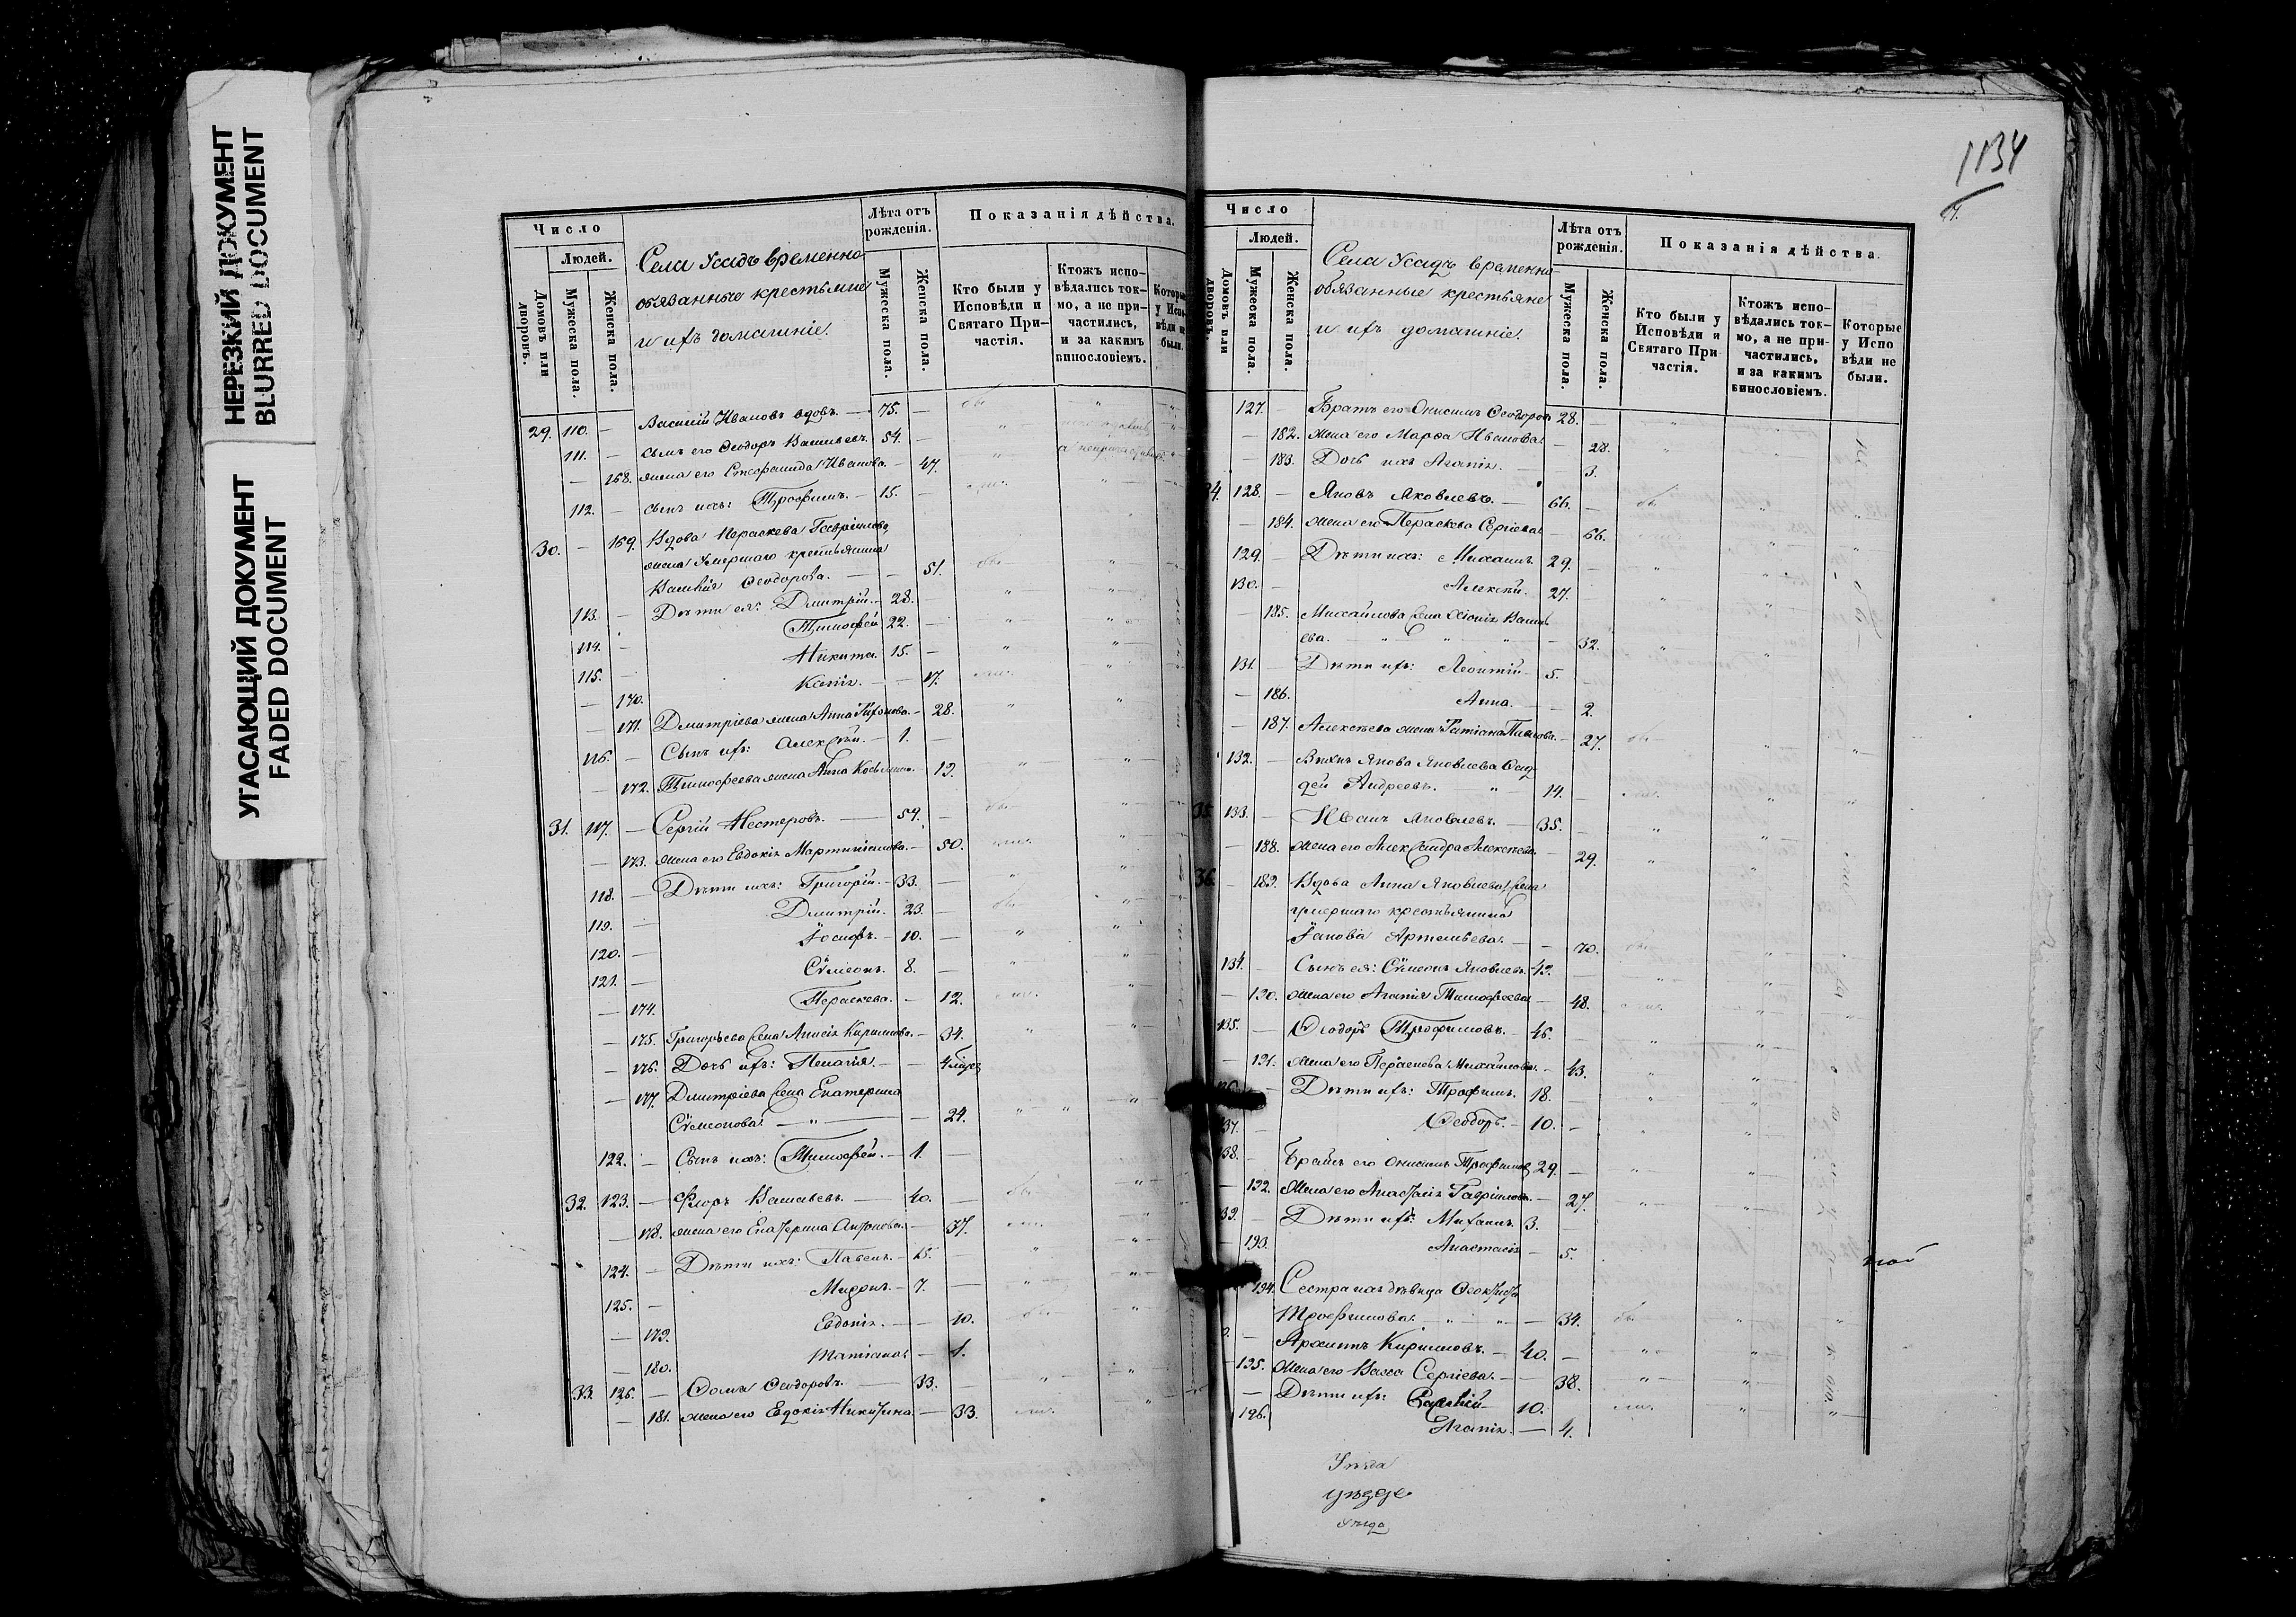 НЕРЕЗКИЙ ДОКУМЕНТ
BLURRED DOCUMENT
УГАСАЮЩИЙ ДОКУМЕНТ
FADED DOCUMENT
Число
Людей.
Домовъ или дворовъ.
Мужеска пола
Женска пола.
Села Усадъ временно
обязанные крестьяне
и ихъ домашніе.
Лѣта отъ рожденія.
Мужеска пола.
Женска пола.
Показанія дѣйства.
Кто были у Исповѣди и Святаго Причастія.
Ктожъ исповѣдались токмо, а не причастились, и за какимъ винословіемъ.
29. 110. — Василій Ивановъ вдовъ. — 75. —
111. — сынъ его Ѳеодоръ Васильевъ. 54. —
— 168. жена его Стефанида Иванова. — 47.
112. — сынъ ихъ: Трофимъ. — 15. —
30. — 169. Вдова Параскева Гавріилова,
жена умершаго крестьянина
Василія Ѳеодорова. — — 51.
113. — Дѣти ея: Дмитрій. — 28. —
114. — Тимофей 22. —
115. — Никита. 15. —
— 170. Ксенія. — — 17.
— 171. Дмитріева жена Анна — 28.
116. — Сынъ ихъ: Алексѣй. — 1. —
— 172. Тимофеева жена Анна — 19.
31. 117. — Сергій Нестеровъ. — 59. —
— 173. жена его Евдокія Мартиніанова. — 50.
118. — Дѣти ихъ: Григорій. — 33. —
119. — Дмитрій. 23. —
120. — Іосифъ. — 10. —
121. — Сѵмеонъ. 8. —
— 174. Параскева. — 12.
— 175. Григорьева жена Анисія Кириллова. — 34.
— 176. Дочь ихъ: Пелагія. — — 4
— 177. Дмитріева жена Екатерина
Сѵмеонова. — " — — 24.
122. — Сынъ ихъ: Тимофей. — 1. —
32. 123. — Флоръ Васильевъ. — 40. —
— 178. жена его Екатерина Антонова. — 37.
124. — Дѣти ихъ: Павелъ. — 15. —
125. — Миронъ. — 7. —
— 179. Евдокія. — — 10.
— 180. Татіана. — 1.
33. 126. — Ѳома Ѳеодоровъ. — 33. —
— 181. жена его Евдокія Никитина. — 33.
1134
Число
Людей.
Домовъ или дворовъ.
Мужеска пола.
Женска пола.
Села Усадъ временно-
обязанные крестьяне
и ихъ домашніе.
Лѣта отъ рожденія.
Мужеска пола.
Женска пола.
Показанія дѣйства.
Кто были у Исповѣди и Святаго Причастія.
Ктожъ исповѣдались токмо, а не причастились, и за какимъ винословіемъ.
Которые у Исповѣди не были.
127. — Братъ его Онисимъ Ѳеодоровъ 28. —
— 182. жена его Марѳа Иванова. — 28.
— 183. Дочь ихъ Агапія. — 3.
34. 128. — Яковъ Яковлевъ. — 66. —
— 184. жена его Параскева Сергіева. — 66.
129. — Дѣти ихъ: Михаилъ. 29. —
130. — Алексѣй. 27. —
— 185. Михайлова жена Хіонія Василь
ева. — " — " — 32.
131. — Дѣти ихъ: Леонтій 5. —
— 186. Анна. — 2.
— 187. Алексѣева жена Татіана Павлова. — 27.
132. — Внукъ Якова Яковлева
Андреевъ. — " — 14. —
35. 133. — Иванъ Яковлевъ. — 35. —
— 188. жена его Александра Алексѣева. — 29.
36. — 189. Вдова Анна Яковлева жена
умершаго крестьянина
Іакова Артемьева. — — 70.
134. — Сынъ ея: Сѵмеонъ Яковлевъ. 49. —
— 190. жена его Агапія Тимофеева — 48.
135. — Ѳеодоръ Трофимовъ. — 46. —
— 191. жена его Параскева Михайлова. — 43.
136. — Дѣти ихъ: Трофимъ. 18. —
137. — Ѳеодоръ. — 10. —
138. — Братъ его Онисимъ Трофимовъ 29. —
— 192. жена его Анастасія Гавріилова. — 27.
139. — Дѣти ихъ: Михаилъ. 3. —
— 193. Анастасія — 5.
194. Сестра ихъ дѣвица Ѳеоктиста
Трофимова. — " — " — 34.
— Архиппъ Кирилловъ. — 40. —
— 195. жена его Васса Сергіева. — — 38.
— Дѣти ихъ: 10.
196. Агапія. — 4.
Уѣзда
уѣзде